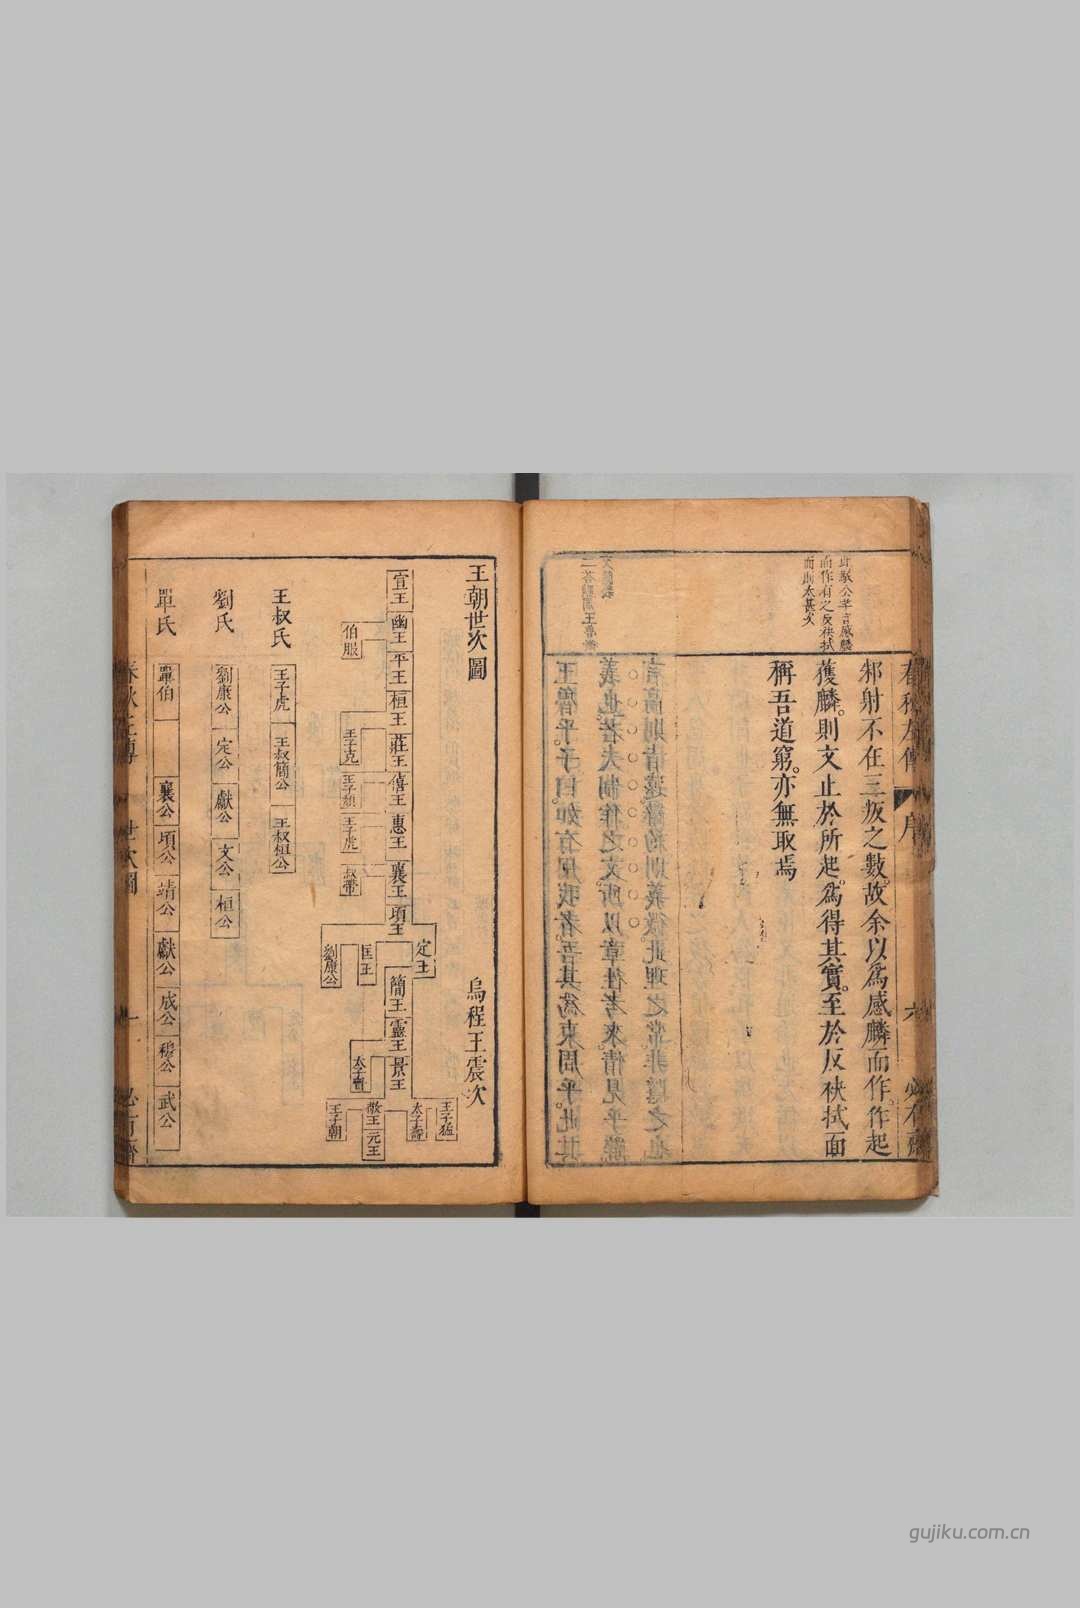 春秋左傳
序
六
必有齋
此駁公羊言感麟
而作有之反袂拭
面則太甚矣
邾射不在三叛之數。故余以爲感麟而作。作起
獲麟。則文止於所起。爲得其實。至於反袂拭面
稱吾道窮。亦無取焉
王朝世次圖
烏程王震次
宣王
幽王
伯服
平王
桓王
莊王
王子克
僖王
王子頹
惠王
王子虎
襄王
叔帶
頃王
定王
匡王
劉康公
簡王
靈王
景王
王子猛
太子壽
敬王
元王
王子朝
王叔氏
王子虎
王叔簡公
王叔桓公
劉氏
劉康公
定公
獻公
文公
桓公
單氏
單伯
襄公
頃公
靖公
獻公
成公
穆公
武公
春秋左傳
世次圖
一
必有齋
gujiku.com.cn